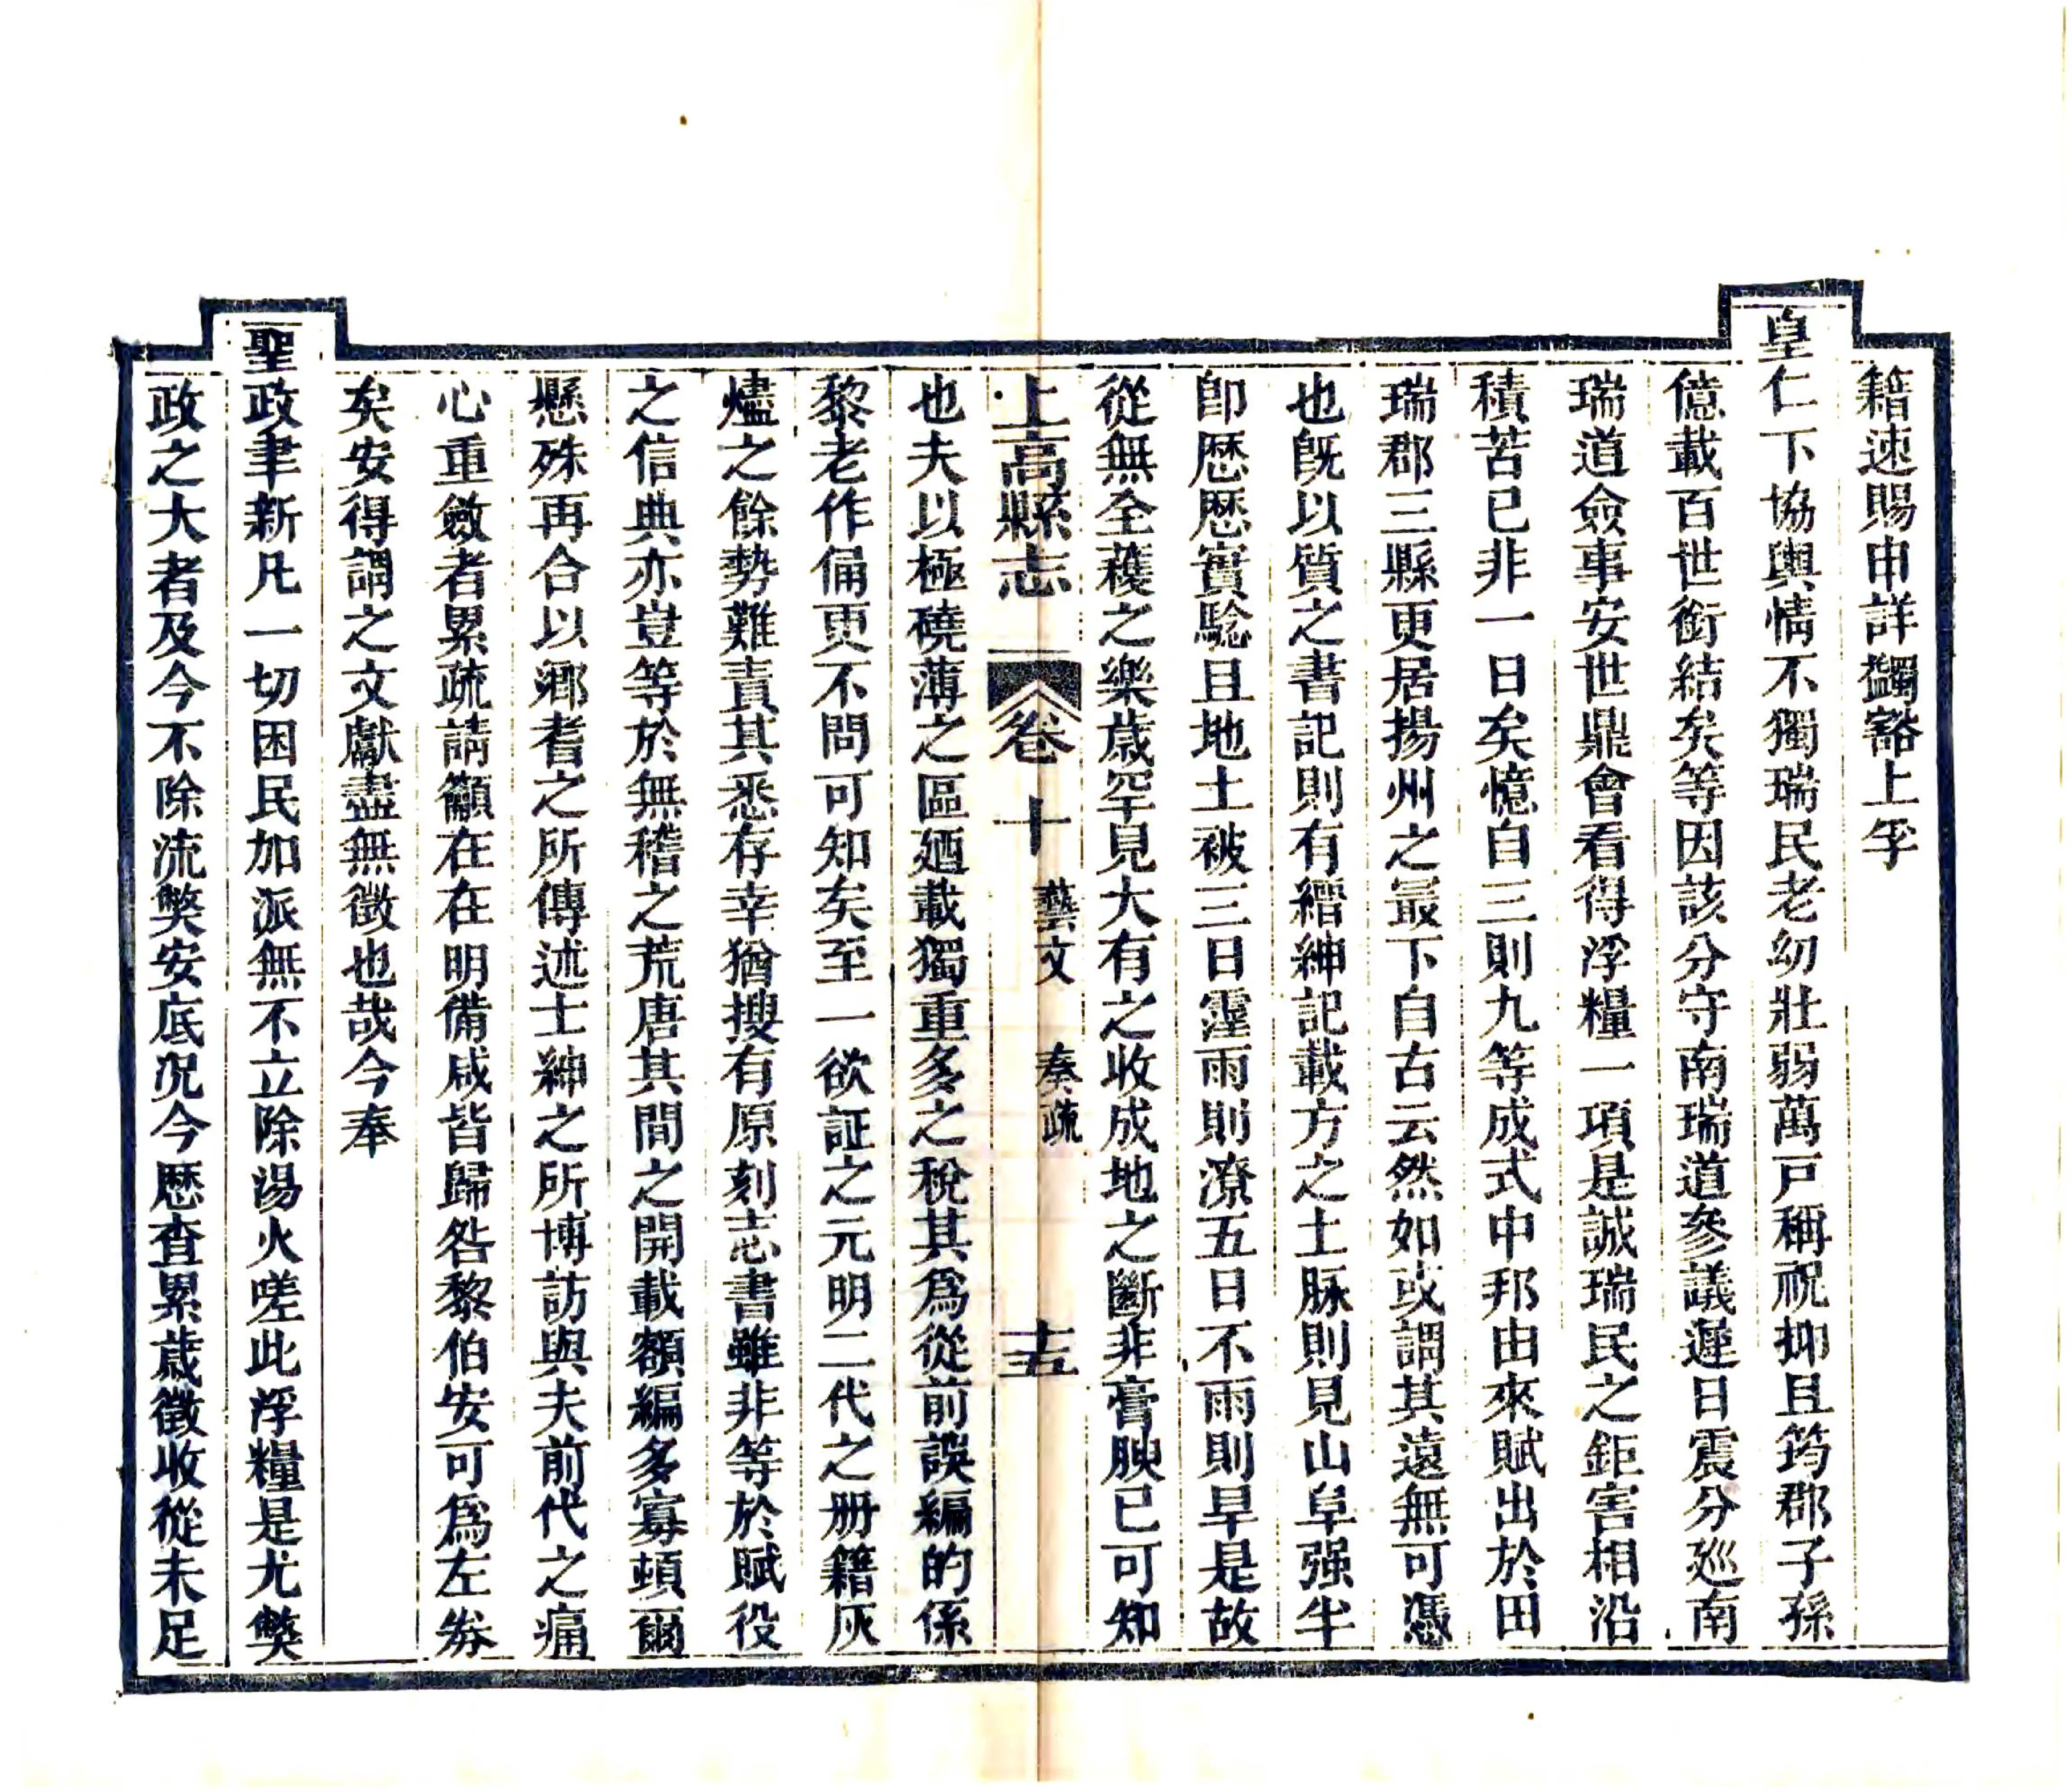 籍速賜申詳蠲豁上孚
皇仁下協輿情不獨瑞民老幼壯弱萬戸稱祝抑且筠郡子孫
億載百世銜結矣等因該分守南瑞道參議遲日震分廵南
瑞道僉事安世鼎會看得浮糧一項是誠瑞民之鉅害相沿
積苦已非一日矣憶自三則九等成式中邦由來賦出於田
瑞郡三縣更居揚州之最下自古云然如或謂其遠無可憑
也旣以質之書記則有縉紳記載方之土脉則見山阜强半
卽歴歴實騐且地土被三日霪雨則潦五日不雨則旱是故
從無全穫之樂歳罕見大有之收成地之斷非膏腴已可知
上高縣志 卷十 藝文 奏疏 十五
也夫以極磽薄之區廼載獨重多之稅其爲從前誤編的係
黎老作俑更不問可知矣至一欲証之元明二代之册籍灰
燼之餘勢難責其悉存幸猶搜有原刻志書雖非等於賦役
之信典亦豈等於無稽之荒唐其間之開載額編多寡頓爾
懸殊再合以鄉耆之所傳述士紳之所博訪與夫前代之痛
心重斂者累疏請籲在在明備咸皆歸咎黎伯安可爲左券
矣安得謂之文獻盡無徵也哉今奉
聖政聿新凡一切困民加派無不立除湯火嗟此浮糧是尤獘
政之大者及今不除流獘安底况今歴查累歳徵收從未足